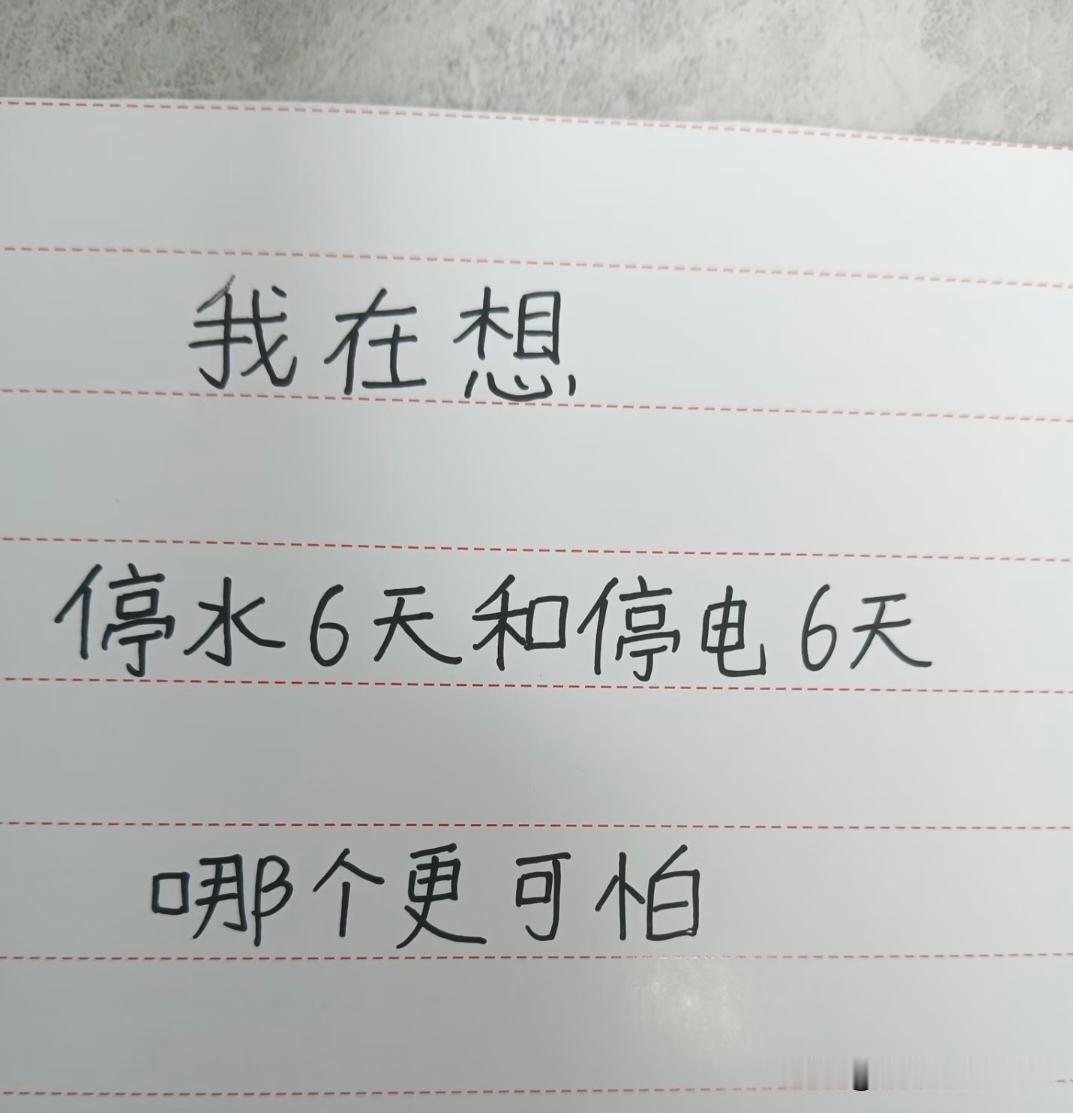 我在想
停水6天和停电6天
哪个更可怕